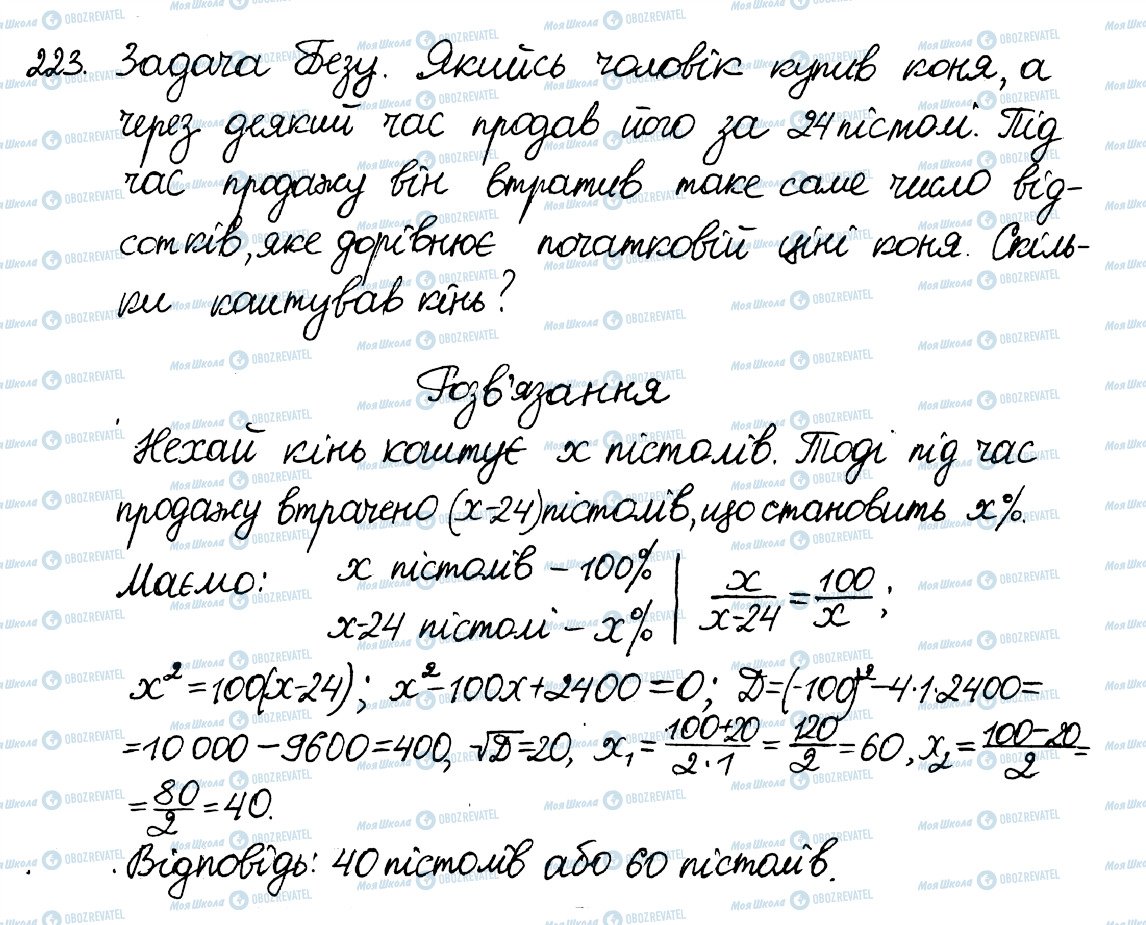 223. Задача Безу. Якийсь чоловік купив коня, а
через деякий час продав його за 24 пістолі. Під
час продажу він втратив таке саме число від-
сотків, яке дорівнює початковій ціні коня. Скіль-
ки коштував кінь?
Розв'язання
Нехай кінь коштує x пістолів. Тоді під час
продажу втрачено (x-24) пістолів, що становить x%.
Маємо: x пістолів – 100% | x/(x-24) = 100/x;
x-24 пістолі – x%
x² = 100(x-24); x² - 100x + 2400 = 0; D = (-100)² - 4·1·2400 =
= 10 000 - 9600 = 400, √D = 20, x₁ = (100+20)/(2·1) = 120/2 = 60, x₂ = (100-20)/2 =
= 80/2 = 40.
Відповідь: 40 пістолів або 60 пістолів.
МояШкола OBOZREVATEL